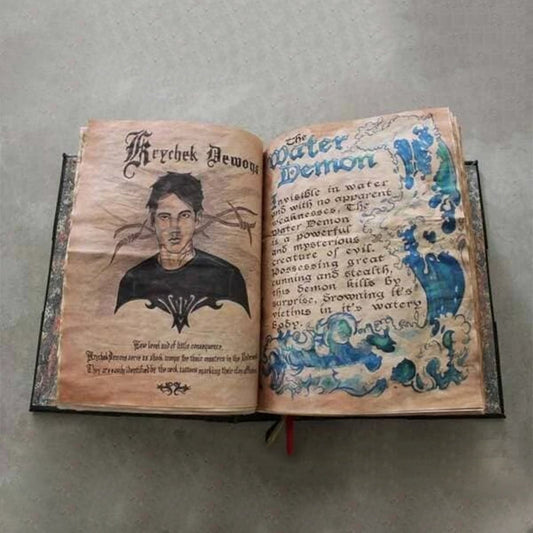 Krychek Demons
Low level and of little consequence,
Krychek Demons serve as shock troops for their masters in the
They are easily identified by the neck tattoos marking their clan
The
Water
Demon
Invisible in water
and with no apparent
weaknesses, The
Water Demon
is a powerful
and mysterious
creature of evil.
Possessing great
cunning and stealth,
this demon kills by
surprise, drowning it's
victims in it's watery
body.